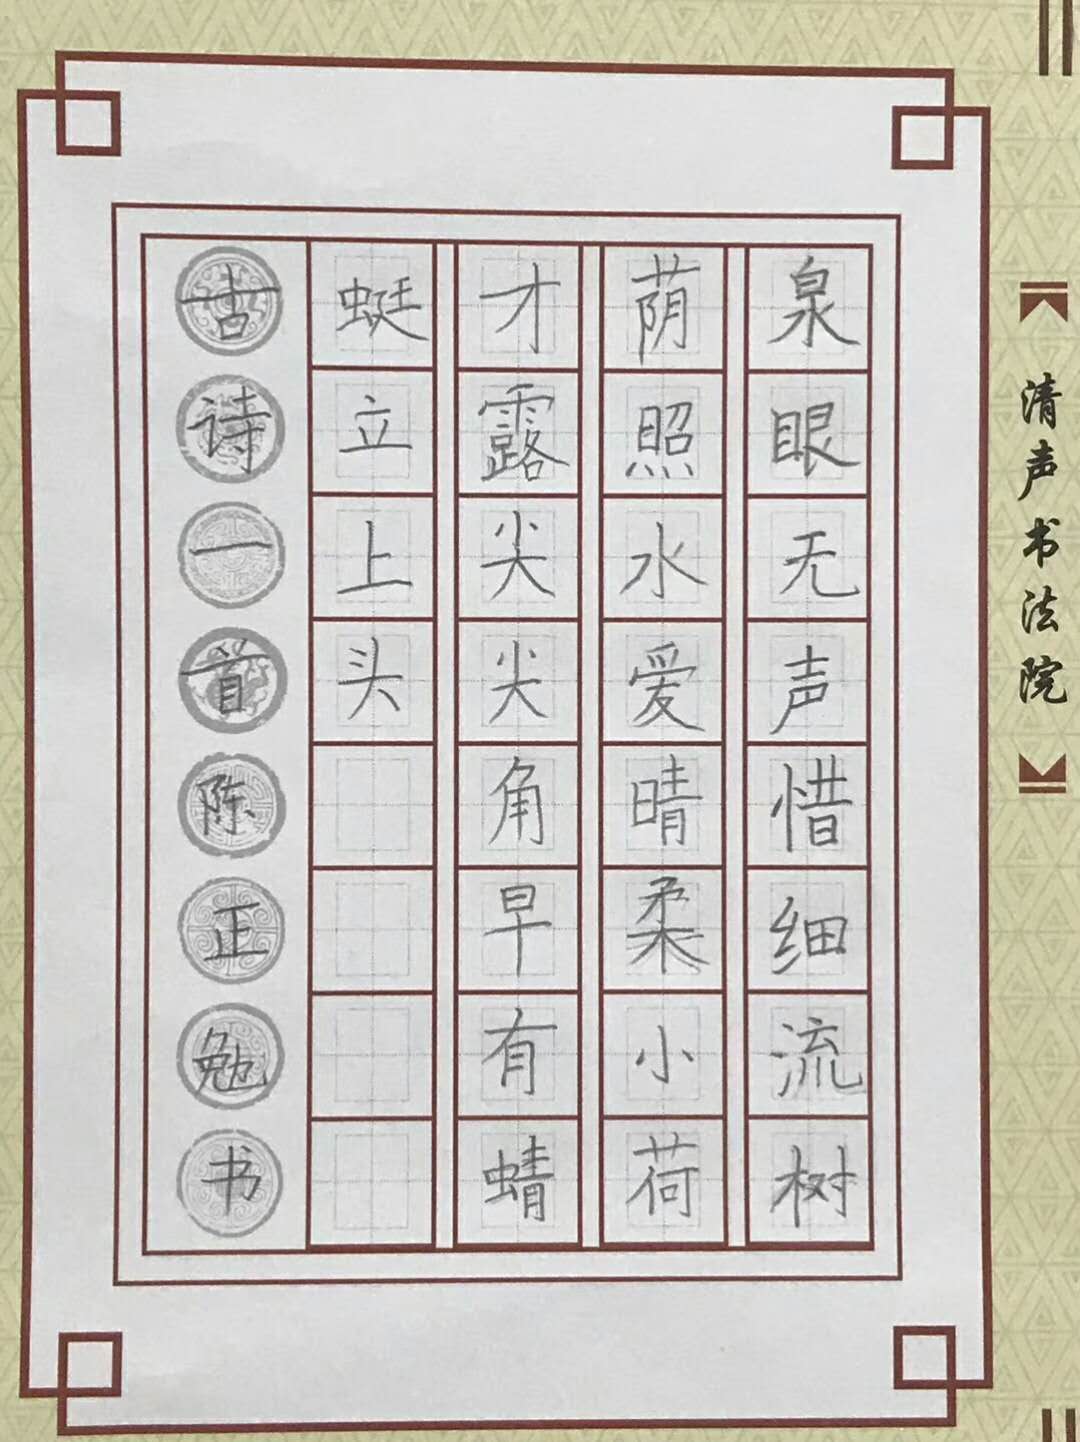 清声书法院
泉眼无声惜细流树
荫照水爱晴柔小荷
才露尖尖角早有蜻
蜓立上头
古诗一首陈正勉书